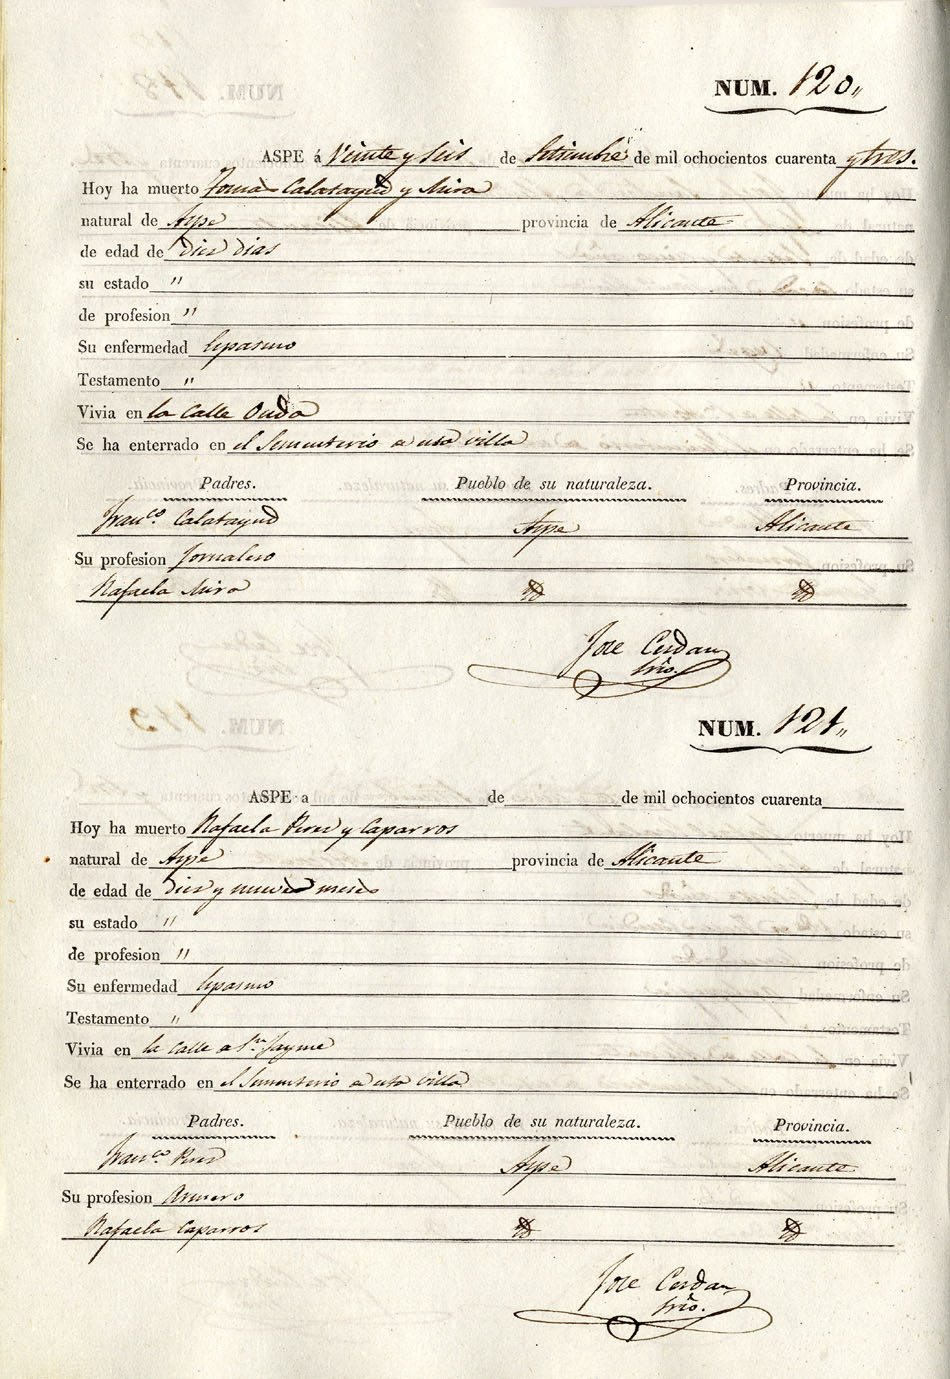 NUM. 120,,
ASPE á Veinte y Seis de Setiembre de mil ochocientos cuarenta y tres.
Hoy ha muerto Tomas Calatayud y Mira
natural de Aspe provincia de Alicante
de edad de diez dias
su estado "
de profesion "
Su enfermedad Espasmo
Testamento "
Vivia en la Calle Onda
Se ha enterrado en el Sementerio de esta villa
Padres. Pueblo de su naturaleza. Provincia.
Franco. Calatayud Aspe Alicante
Su profesion Jornalero
Rafaela Mira Yd Yd
Jose Cerdan
Srio.
NUM. 121,,
ASPE a de de mil ochocientos cuarenta
Hoy ha muerto Rafaela Perez y Caparros
natural de Aspe provincia de Alicante
de edad de diez y nueve meses
su estado "
de profesion "
Su enfermedad Espasmo
Testamento "
Vivia en la Calle de Sn. Jayme
Se ha enterrado en el Sementerio de esta villa
Padres. Pueblo de su naturaleza. Provincia.
Franco. Perez Aspe Alicante
Su profesion Arriero
Rafaela Caparros Yd Yd
Jose Cerdan
Srio.